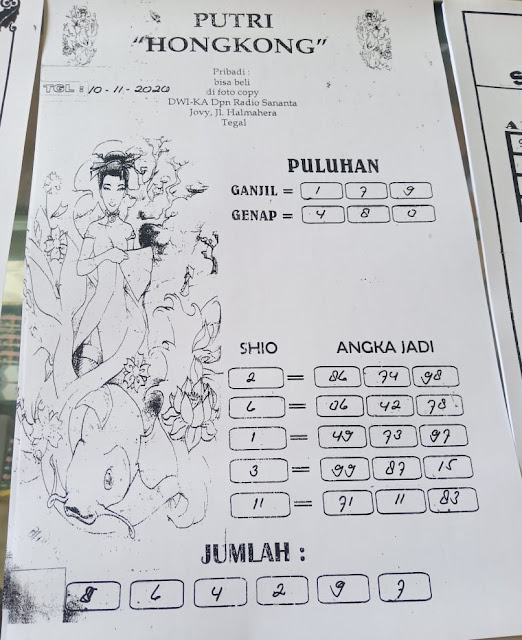 PUTRI
"HONGKONG"
Pribadi :
bisa beli
di foto copy
DWI-KA Dpn Radio Sananta
Jovy, Jl. Halmahera
Tegal
TGL : 10-11-2020
PULUHAN
GANJIL = 1 7 9
GENAP = 4 8 0
SHIO ANGKA JADI
2 = 86 74 98
6 = 06 42 78
1 = 49 73 97
3 = 99 87 15
11 = 71 11 83
JUMLAH :
8 6 4 2 9 7